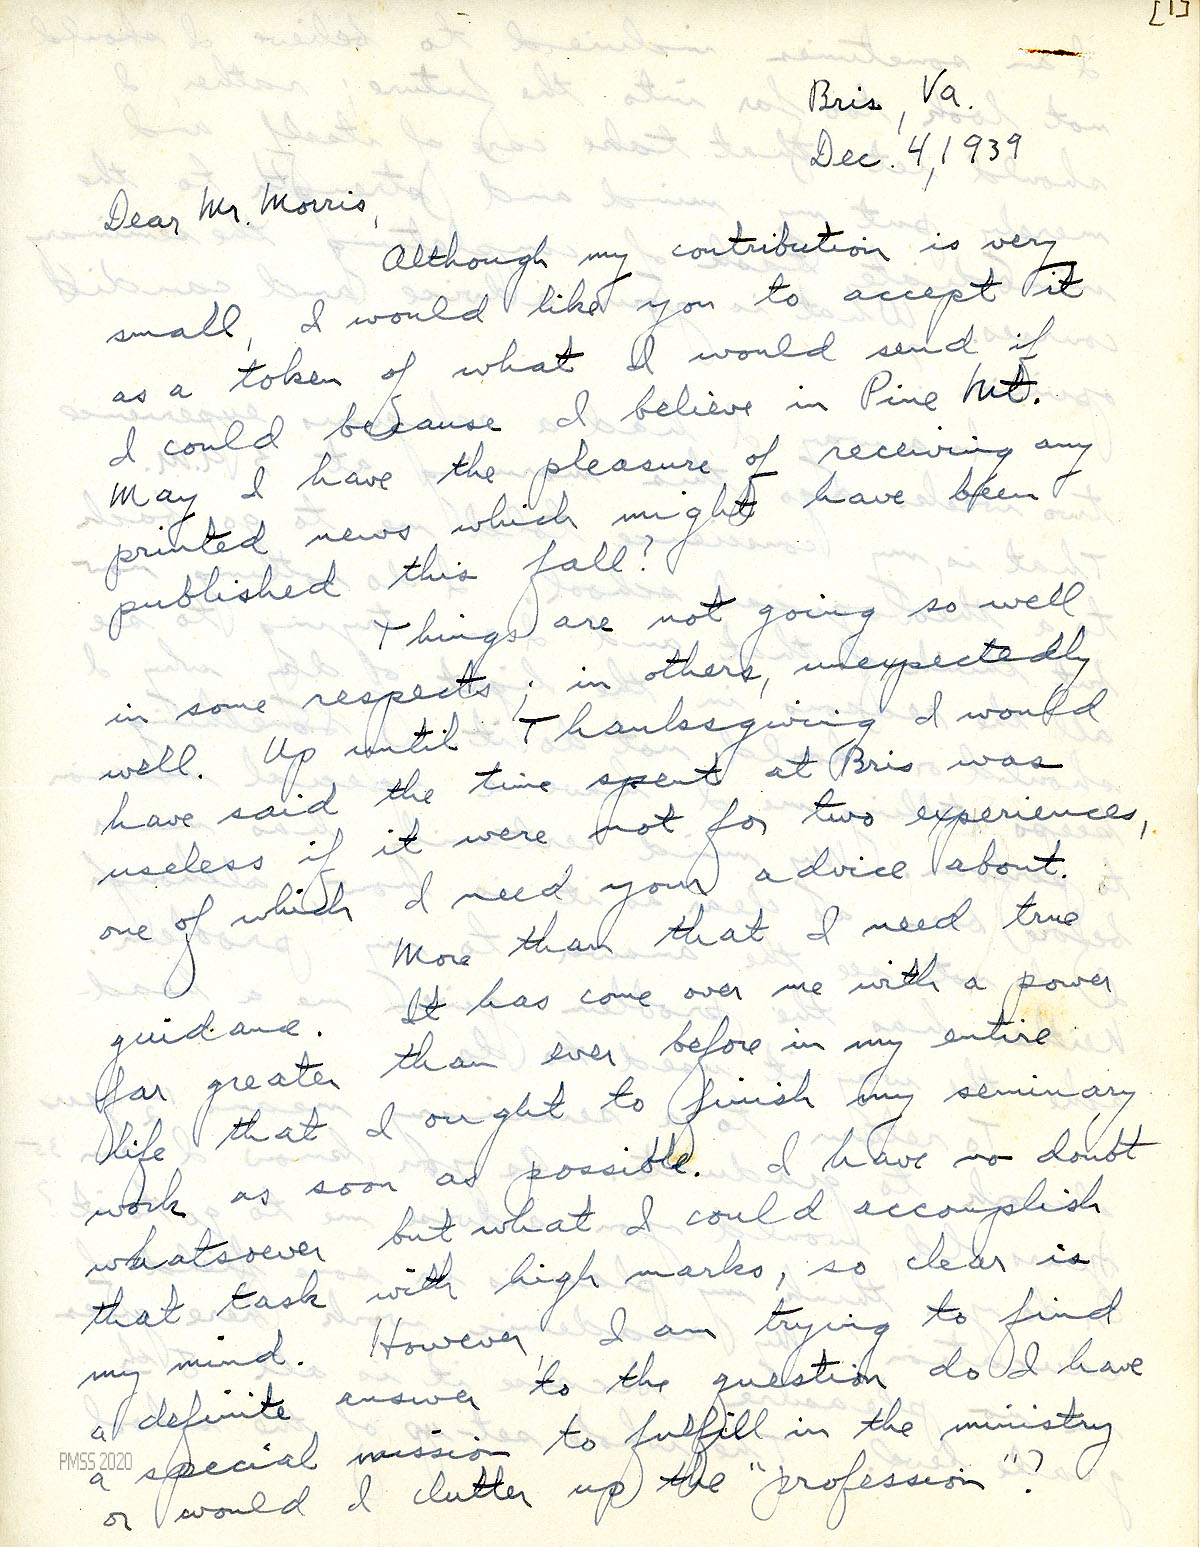 [1]
Bris, Va.
Dec. 4, 1939
Dear Mr. Morris,
Although my contribution is very
small, I would like you to accept it
as a token of what I would send if
I could because I believe in Pine Mt.
May I have the pleasure of receiving any
printed news which might have been
published this fall?
Things are not going so well
in some respects; in others, unexpectedly
well. Up until Thanksgiving I would
have said the time spent at Bris was
useless if it were not for two experiences,
one of which I need your advice about.
More than that I need true
guidance. It has come over me with a power
far greater than ever before in my entire
life that I ought to finish my seminary
work as soon as possible. I have no doubt
whatsoever but what I could accomplish
that task with high marks, so clear is
my mind. However, I am trying to find
a definite answer to the question do I have
a special mission to fulfill in the ministry
or would I clutter up the "profession"?
PMSS 2020